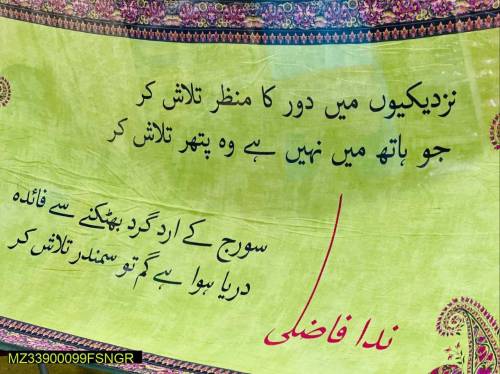 نزدیکیوں میں دور کا منظر تلاش کر
جو ہاتھ میں نہیں ہے وہ پتھر تلاش کر
سورج کے ارد گرد بھٹکنے سے فائدہ
دریا ہوا ہے گم تو سمندر تلاش کر
ندا فاضلی
MZ33900099FSNGR